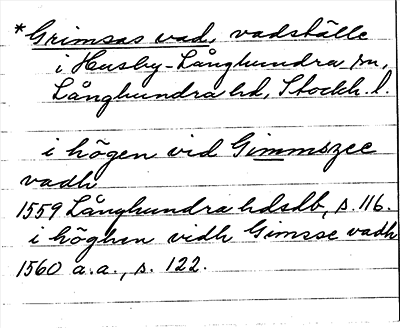 *Grimsas vad, vadställe
i Husby-Långhundra sn,
Långhundra hd, Stockh. l.
i högen vid Gimmszee
vadh
1559 Långhundra hdsdb, s. 116.
i höghen vidh Gimsse vadh
1560 a.a., s. 122.